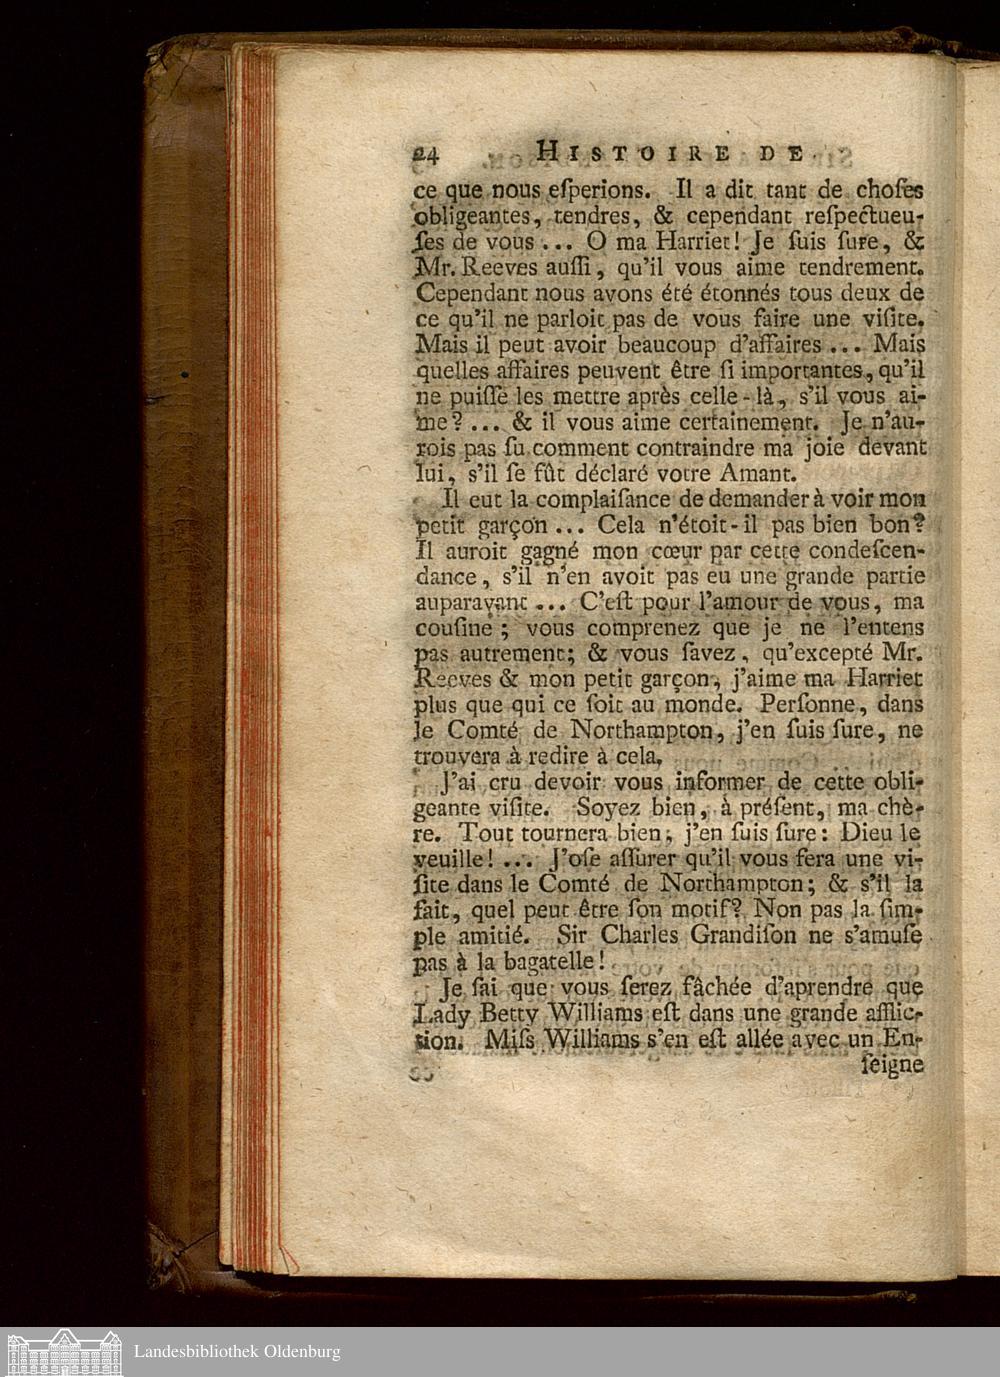 24 HISTOIRE DE
ce que nous eſperions. Il a dit tant de choſes
obligeantes, tendres, & cependant reſpectueu-
ſes de vous ... O ma Harriet! Je ſuis ſure, &
Mr. Reeves auſſi, qu'il vous aime tendrement.
Cependant nous avons été étonnés tous deux de
ce qu'il ne parloit pas de vous faire une viſite.
Mais il peut avoir beaucoup d'affaires ... Mais
quelles affaires peuvent être ſi importantes, qu'il
ne puiſſe les mettre après celle-là, s'il vous ai-
me? ... & il vous aime certainement. Je n'au-
rois pas ſu comment contraindre ma joie devant
lui, s'il ſe fût déclaré votre Amant.
Il eut la complaiſance de demander à voir mon
petit garçon ... Cela n'étoit-il pas bien bon?
Il auroit gagné mon cœur par cette condeſcen-
dance, s'il n'en avoit pas eu une grande partie
auparavant ... C'eſt pour l'amour de vous, ma
couſine; vous comprenez que je ne l'entens
pas autrement; & vous ſavez, qu'excepté Mr.
Reeves & mon petit garçon, j'aime ma Harriet
plus que qui ce ſoit au monde. Perſonne, dans
le Comté de Northampton, j'en ſuis ſure, ne
trouvera à redire à cela.
J'ai cru devoir vous informer de cette obli-
geante viſite. Soyez bien, à préſent, ma chè-
re. Tout tournera bien, j'en ſuis ſure: Dieu le
veuille! ... J'oſe aſſurer qu'il vous fera une vi-
ſite dans le Comté de Northampton; & s'il la
fait, quel peut être ſon motif? Non pas la ſim-
ple amitié. Sir Charles Grandiſon ne s'amuſe
pas à la bagatelle!
Je ſai que vous ſerez fâchée d'aprendre que
Lady Betty Williams eſt dans une grande afflic-
tion. Miſs Williams s'en eſt allée avec un En-
ſeigne
Landesbibliothek Oldenburg